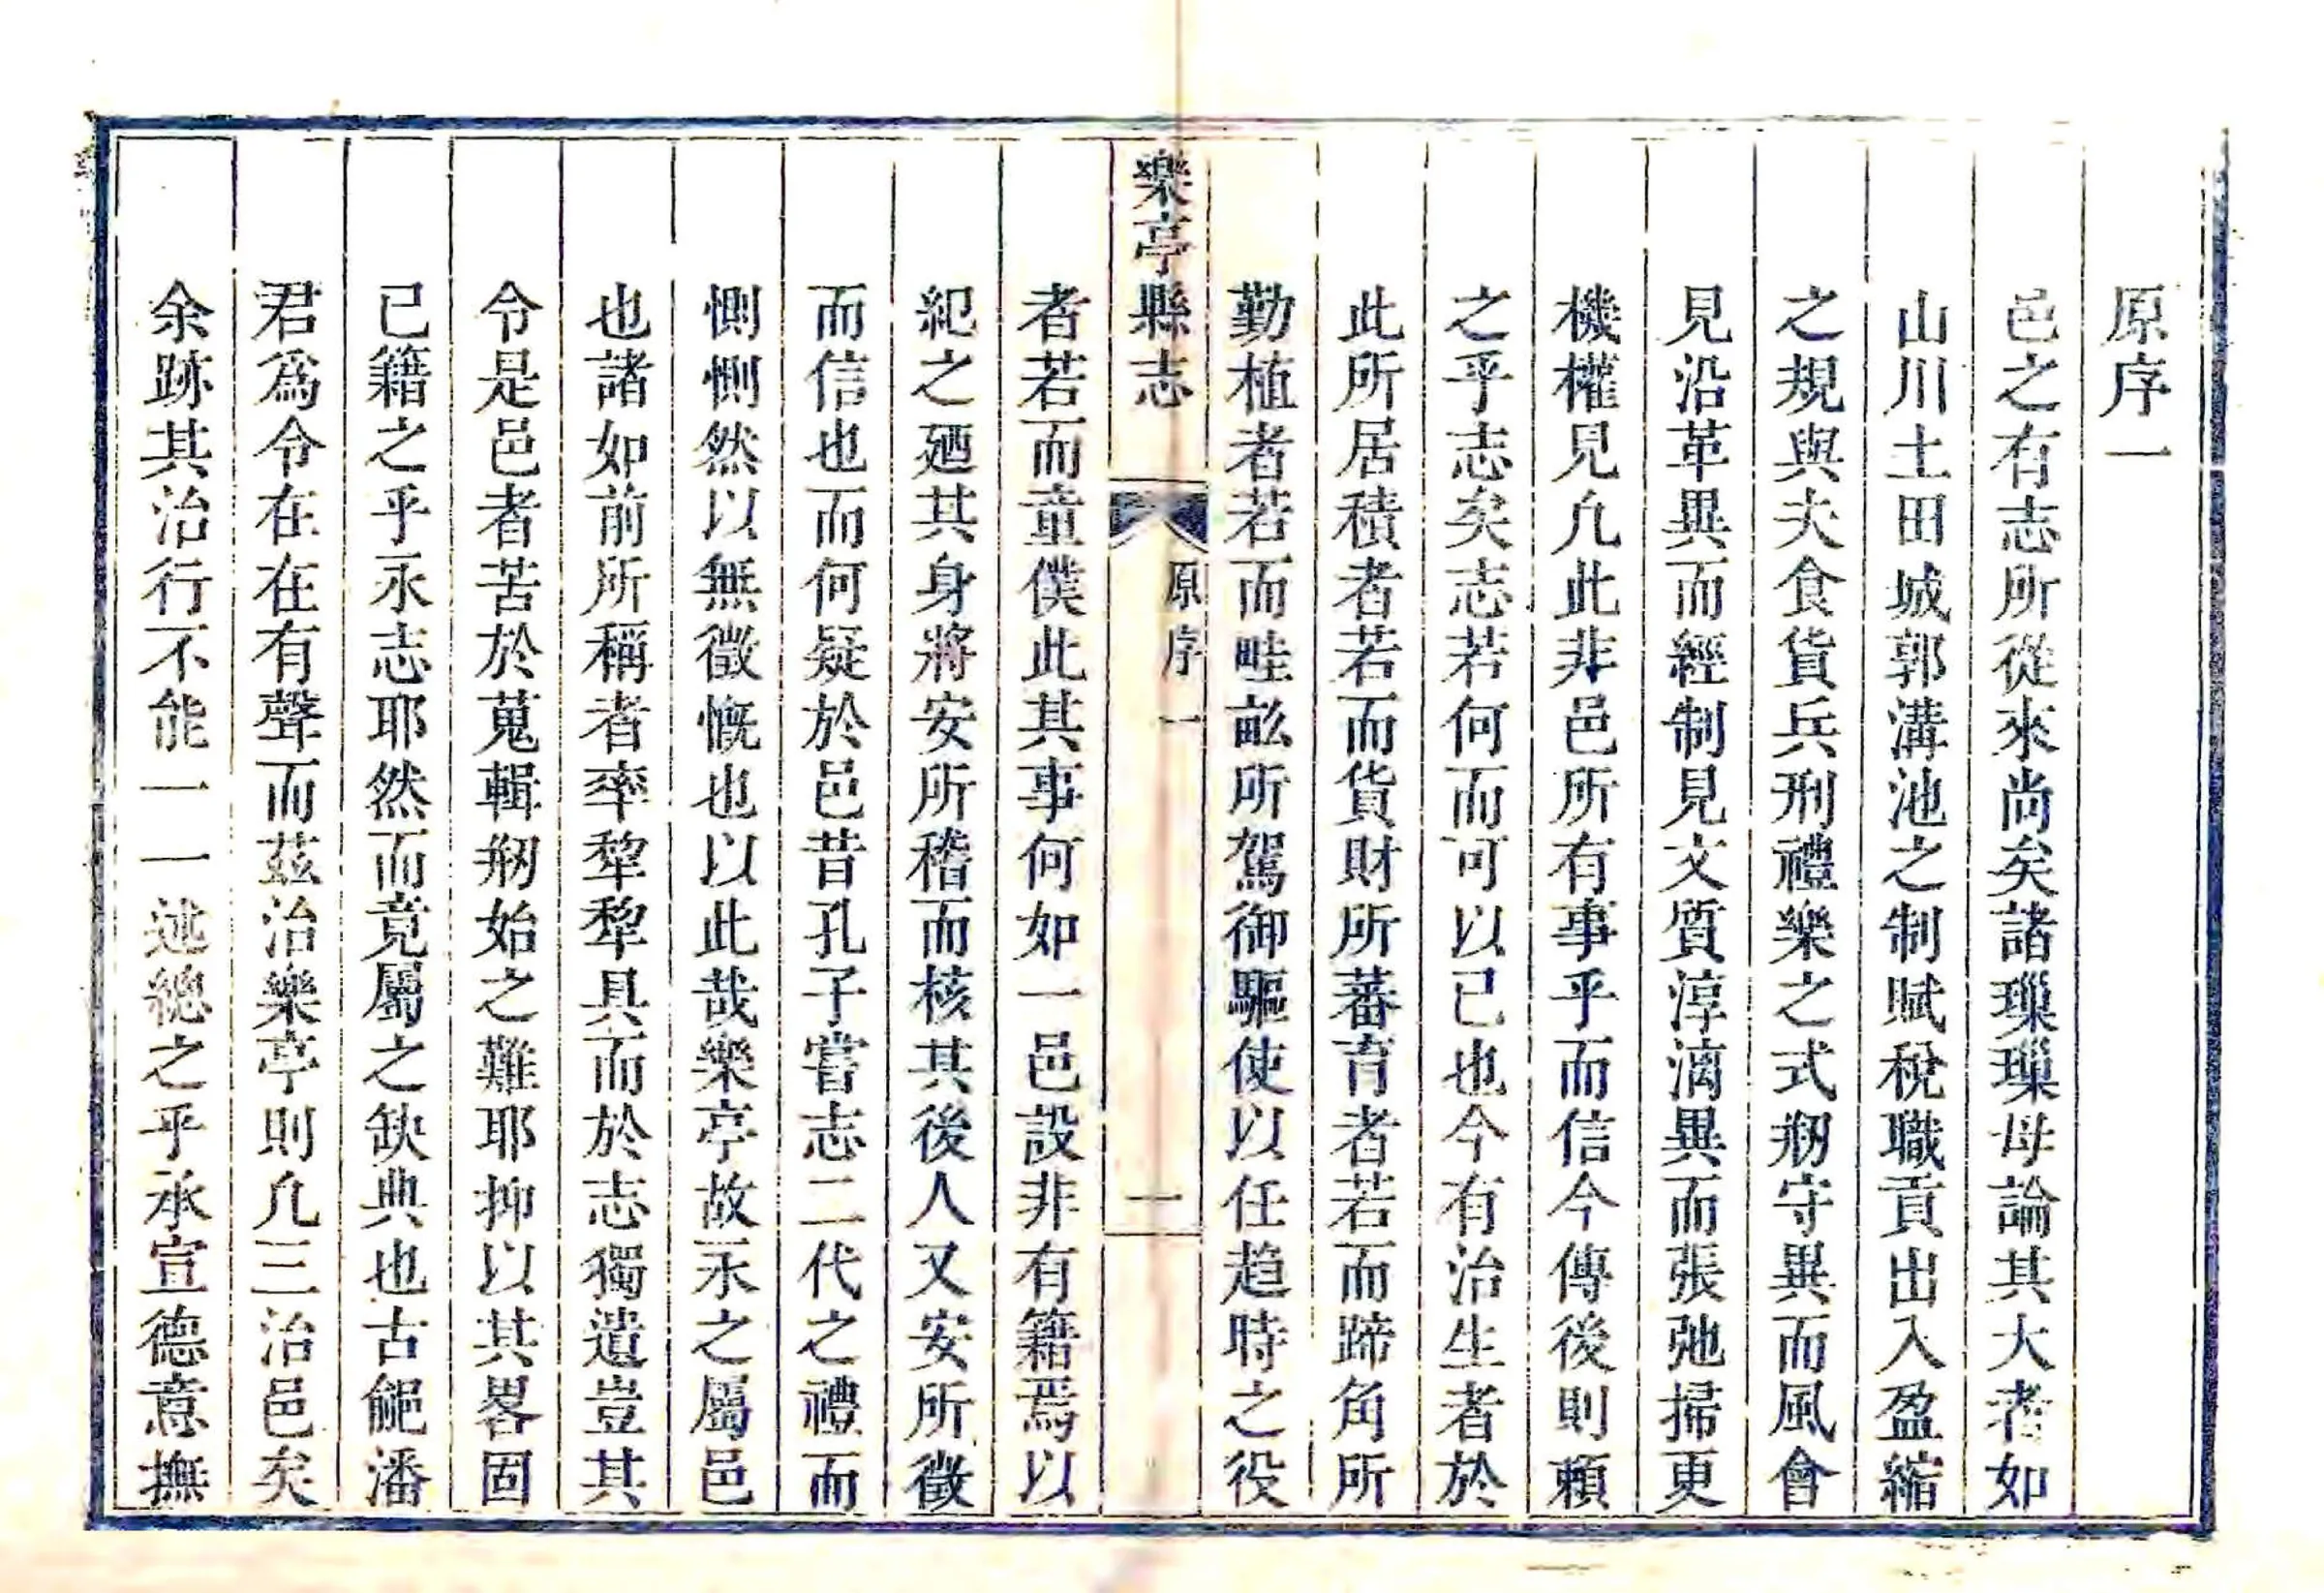 原序一
邑之有志所從來尚矣諸璅璅毋論其大者如
山川土田城郭溝池之制賦稅職貢出入盈縮
之規與夫食貨兵刑禮樂之式剏守異而風會
見沿革異而經制見文質淳漓異而張弛掃更
機權見凢此非邑所有事乎而信今傳後則賴
之乎志矣志若何而可以已也今有治生者於
此所居積者若而貨財所蕃育者若而蹄角所
勤植者若而畦畝所駕御驅使以任趋時之役
樂亭縣志
原序一
一
者若而童僕此其事何如一邑設非有籍焉以
紀之廼其身將安所稽而核其後人又安所徵
而信也而何疑於邑昔孔子嘗志二代之禮而
惻惻然以無徵慨也以此哉樂亭故永之屬邑
也諸如前所稱者率犂犂具而於志獨遺豈其
令是邑者苦於蒐輯剏始之難耶抑以其畧固
已籍之乎永志耶然而竟屬之缺典也古郒潘
君爲令在在有聲而茲治樂亭則凢三治邑矣
余跡其治行不能一一述總之乎承宣德意撫